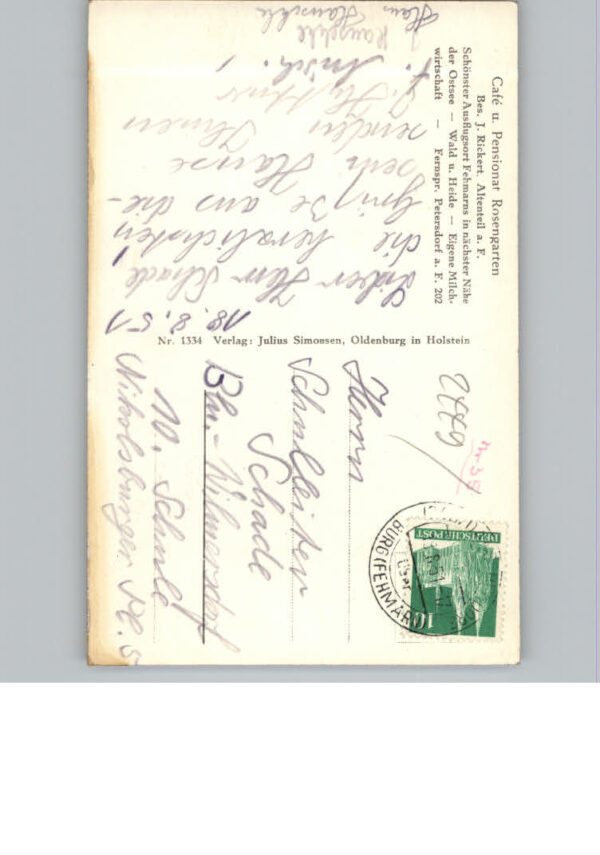 Café u. Pensionat Rosengarten
Bes. J. Rickert, Altenteil a. F.
Schönster Ausflugsort Fehmarns in nächster Nähe
der Ostsee — Wald u. Heide — Eigene Milch-
wirtschaft — Fernspr. Petersdorf a. F. 202
18.8.51
Lieber Herr Schade!
die herzlichsten
Grüße aus die-
sem Hause
senden Ihnen
Hauschke
Hans Hauschke
Nr. 1334 Verlag: Julius Simonsen, Oldenburg in Holstein
2449
DEUTSCHE POST
10
BURG (FEHMARN)
Herrn
Schulleiter
Schade
Bln.-Wilmersdorf
W. Schule
Nikolsburger Pl. 5